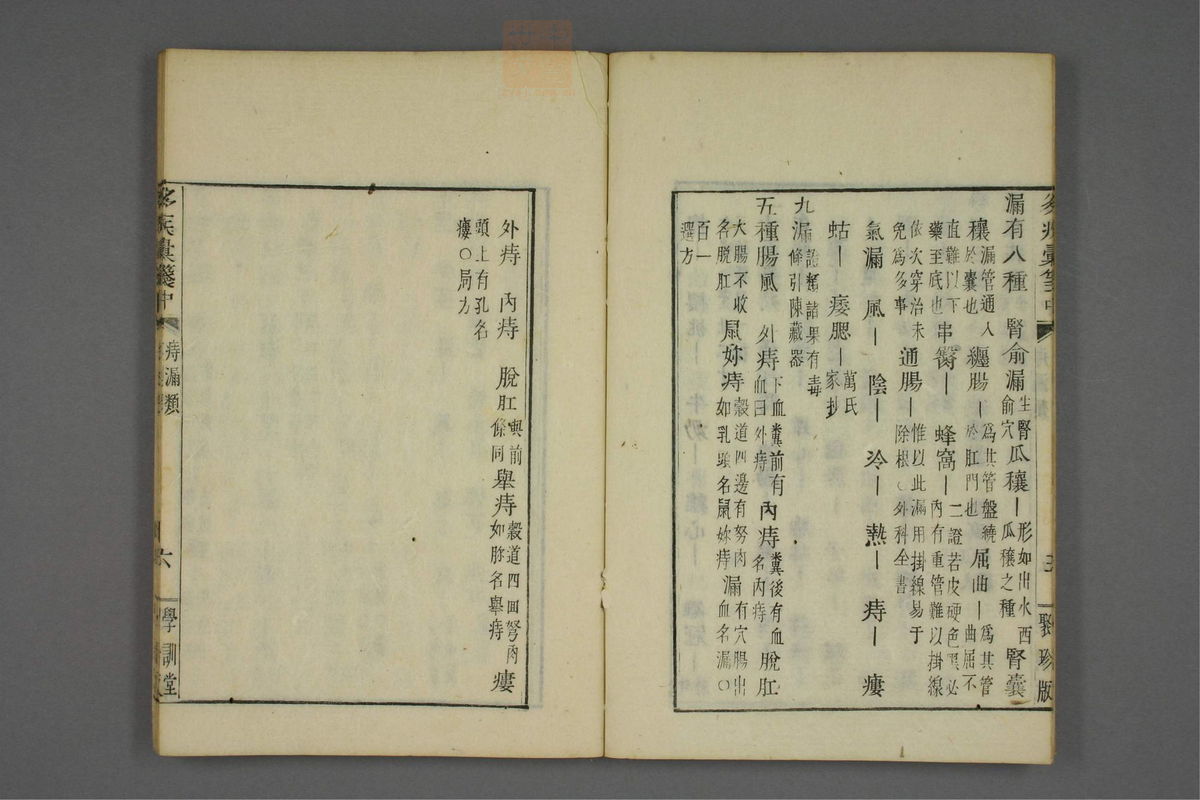 聚珍版
漏有八種 腎俞漏生腎俞穴瓜穰｜形如出水西瓜穰之種腎囊
穰漏管通入於囊也纏腸｜為其管盤繞於肛門也屈曲｜為其管曲屈不
直難以下藥至底也串臀｜蜂窩｜二證若皮硬色黑必內有重管難以掛線
依次穿治未免為多事通腸｜惟以此漏用掛線易于除根○外科全書
氣漏 風｜ 陰｜ 冷｜ 熱｜ 痔｜ 瘻
蛄｜ 痿腮｜萬氏家抄
九漏證類諸果有毒條引陳藏器
五種腸風 外痔下血糞前有血曰外痔內痔糞後有血名內痔脫肛
大腸不收名脫肛鼠妳痔穀道四邊有努肉如乳頭名鼠妳痔漏有穴腸出血名漏○
百一選方
外痔 內痔 脫肛與前條同舉痔穀道四面努肉如胗名舉痔瘻
頭上有孔名瘻○局方
疾彙箋中 痔漏類 六 學訓堂